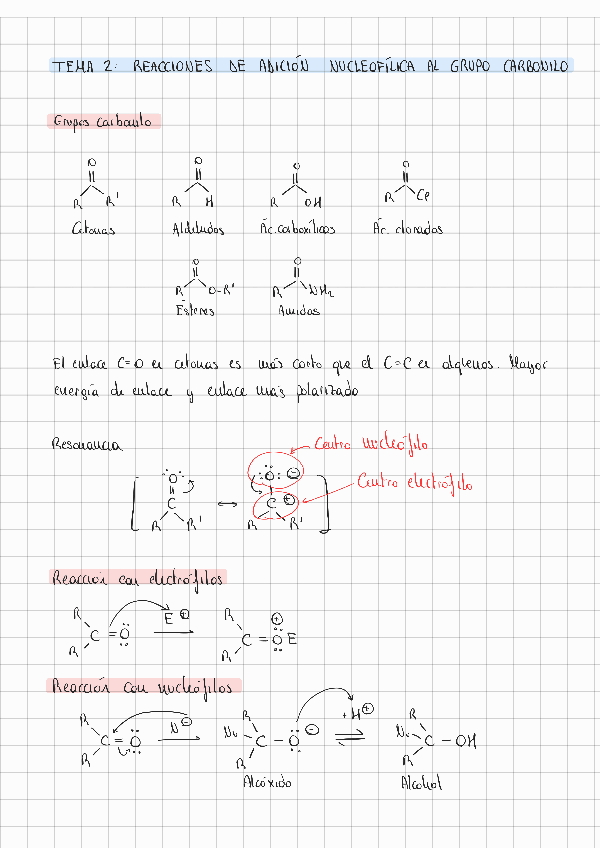 TEMA 2: REACCIONES DE ADICIÓN NUCLEOFÍLICA AL GRUPO CARBONILO
Grupos carbonilo
O O O O
R R' R H R OH R Cl
Cetonas Aldehidos Ác. carboxílicos Ác. clorados
O O
R O-R' R NH2
Ésteres Amidas
El enlace C=O en cetonas es más corto que el C=C en alquenos. Mayor
energía de enlace y enlace más polarizado
Resonancia
Centro nucleófilo
Centro electrófilo
O ↔ O ⊖
C C ⊕
R R' R R'
Reacción con electrófilos
R E ⊕ R ⊕
C=O → C=O E
R R
Reacción con nucleófilos
R N ⊖ R +H ⊕ R
C=O → Nu C-O ⊖ ⇌ Nu C-OH
R R R
Alcóxido Alcohol